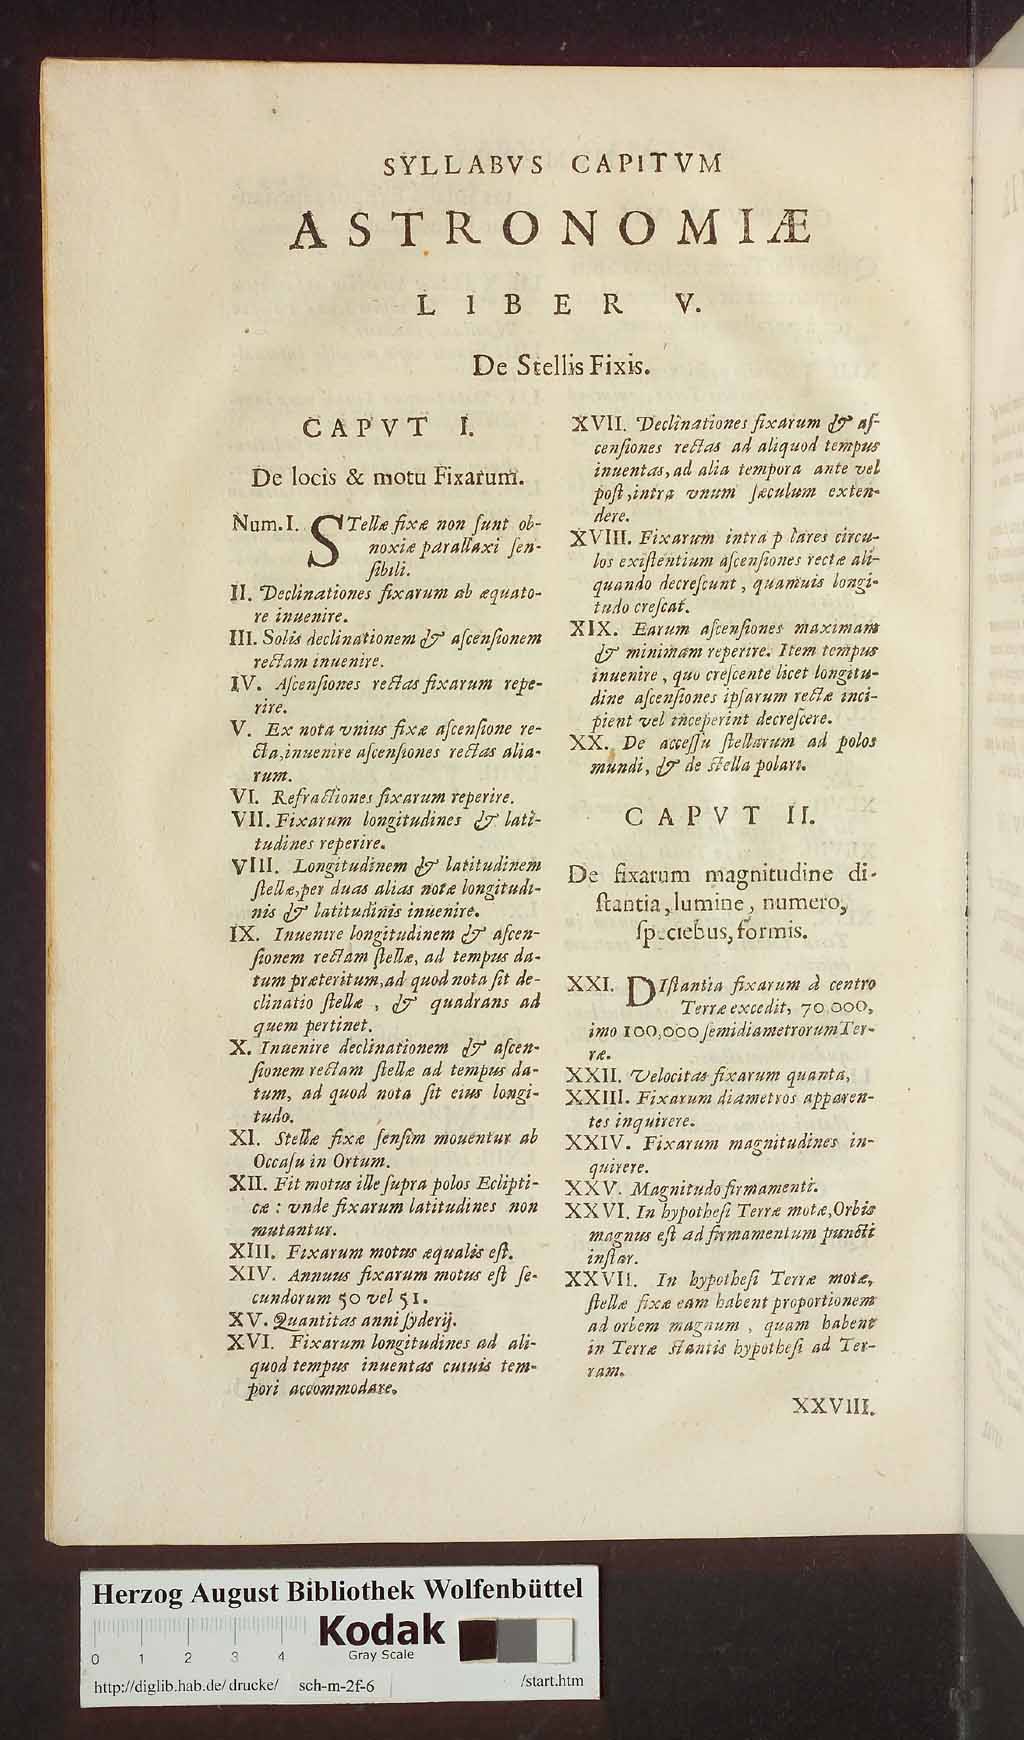 SYLLABVS CAPITVM
ASTRONOMIÆ
LIBER V.
De Stellis Fixis.
CAPVT I.
De locis & motu Fixarum.
Num. I. STellæ fixæ non ſunt ob-
noxiæ parallaxi ſen-
ſibili.
II. Declinationes fixarum ab æquato-
re inuenire.
III. Solis declinationem & aſcenſionem
rectam inuenire.
IV. Aſcenſiones rectas fixarum repe-
rire.
V. Ex nota vnius fixæ aſcenſione re-
cta, inuenire aſcenſiones rectas alia-
rum.
VI. Refractiones fixarum reperire.
VII. Fixarum longitudines & lati-
tudines reperire.
VIII. Longitudinem & latitudinem
ſtellæ, per duas alias notæ longitudi-
nis & latitudinis inuenire.
IX. Inuenire longitudinem & aſcen-
ſionem rectam ſtellæ, ad tempus da-
tum præteritum, ad quod nota ſit de-
clinatio ſtellæ , & quadrans ad
quem pertinet.
X. Inuenire declinationem & aſcen-
ſionem rectam ſtellæ ad tempus da-
tum, ad quod nota ſit eius longi-
tudo.
XI. Stellæ fixæ ſenſim mouentur ab
Occaſu in Ortum.
XII. Fit motus ille ſupra polos Eclipti-
cæ : vnde fixarum latitudines non
mutantur.
XIII. Fixarum motus æqualis eſt.
XIV. Annuus fixarum motus eſt ſe-
cundorum 50 vel 51.
XV. Quantitas anni ſyderij.
XVI. Fixarum longitudines ad ali-
quod tempus inuentas cuiuis tem-
pori accommodare.
XVII. Declinationes fixarum & aſ-
cenſiones rectas ad aliquod tempus
inuentas, ad alia tempora ante vel
poſt, intra vnum ſæculum exten-
dere.
XVIII. Fixarum intra p lares circu-
los exiſtentium aſcenſiones rectæ ali-
quando decreſcunt , quamuis longi-
tudo creſcat.
XIX. Earum aſcenſiones maximam
& minimam reperire. Item tempus
inuenire , quo creſcente licet longitu-
dine aſcenſiones ipſarum rectæ inci-
pient vel inceperint decreſcere.
XX. De acceſſu ſtellarum ad polos
mundi, & de ſtella polari.
CAPVT II.
De fixarum magnitudine di-
ſtantia, lumine, numero,
ſpeciebus, formis.
XXI. DIſtantia fixarum à centro
Terræ excedit, 70,000,
imo 100,000 ſemidiametrorum Ter-
ræ.
XXII. Velocitas fixarum quanta,
XXIII. Fixarum diametros apparen-
tes inquirere.
XXIV. Fixarum magnitudines in-
quirere.
XXV. Magnitudo firmamenti.
XXVI. In hypotheſi Terræ motæ, Orbis
magnus eſt ad firmamentum puncti
inſtar.
XXVII. In hypotheſi Terræ motæ,
ſtellæ fixæ eam habent proportionem
ad orbem magnum , quam habent
in Terræ ſtantis hypotheſi ad Ter-
ram.
XXVIII.
Herzog August Bibliothek Wolfenbüttel
Kodak
Gray Scale
0 1 2 3 4
http://diglib.hab.de/drucke/ sch-m-2f-6 /start.htm